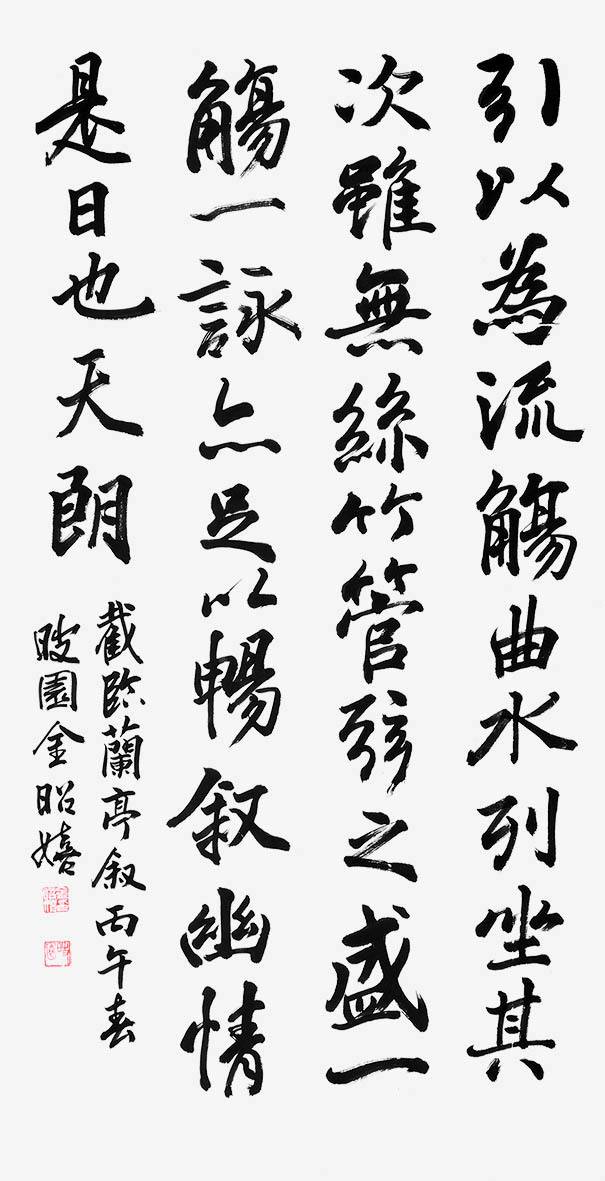 引以為流觴曲水列坐其
次雖無絲竹管弦之盛一
觴一詠亦足以暢敘幽情
是日也天朗
截臨蘭亭叙丙午春
園金昭嬉